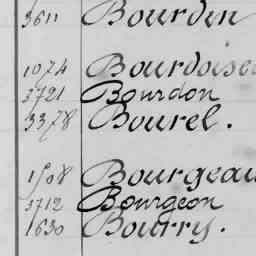 3611 Bourdin
1074 Bourdoise
3721 Bourdon
3378 Bourel.
1508 Bourgeau
3712 Bourgeon
1630 Bourry.